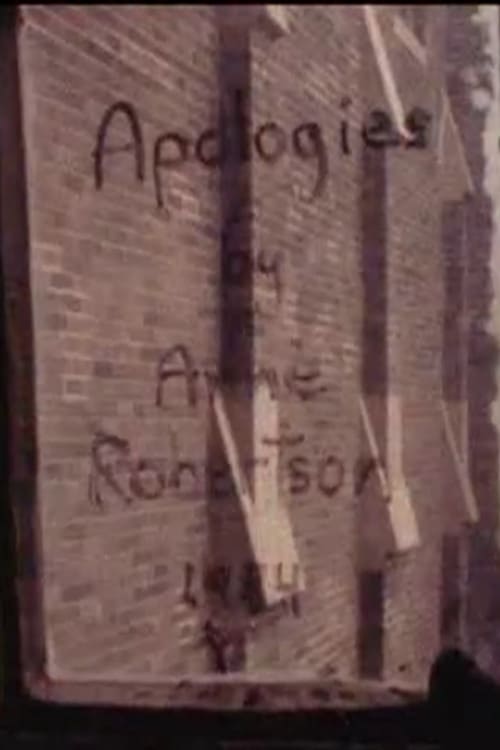 Apologies
by
Anne
Robertson
1984